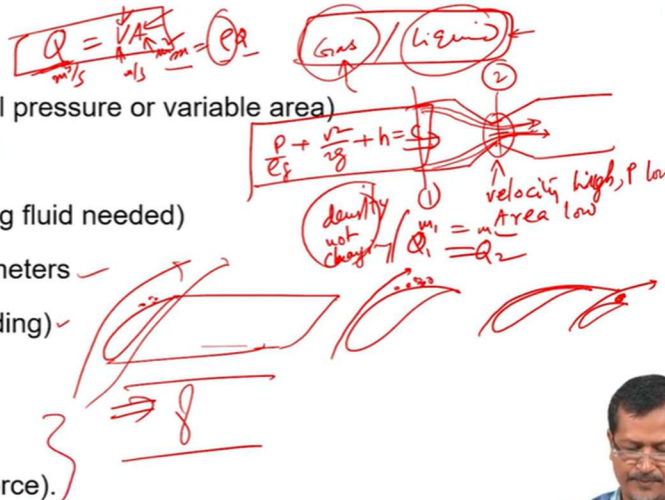 Q = VA = ṁ = ρQ
m³/s m/s
Gas / Liquid
l pressure or variable area)
2
P/ρg + v²/2g + h = C
1
velocity high, P low
Area low
g fluid needed)
density not changing / m₁ = m₂
Q₁ = Q₂
neters
ding)
⇒ 8
rce).